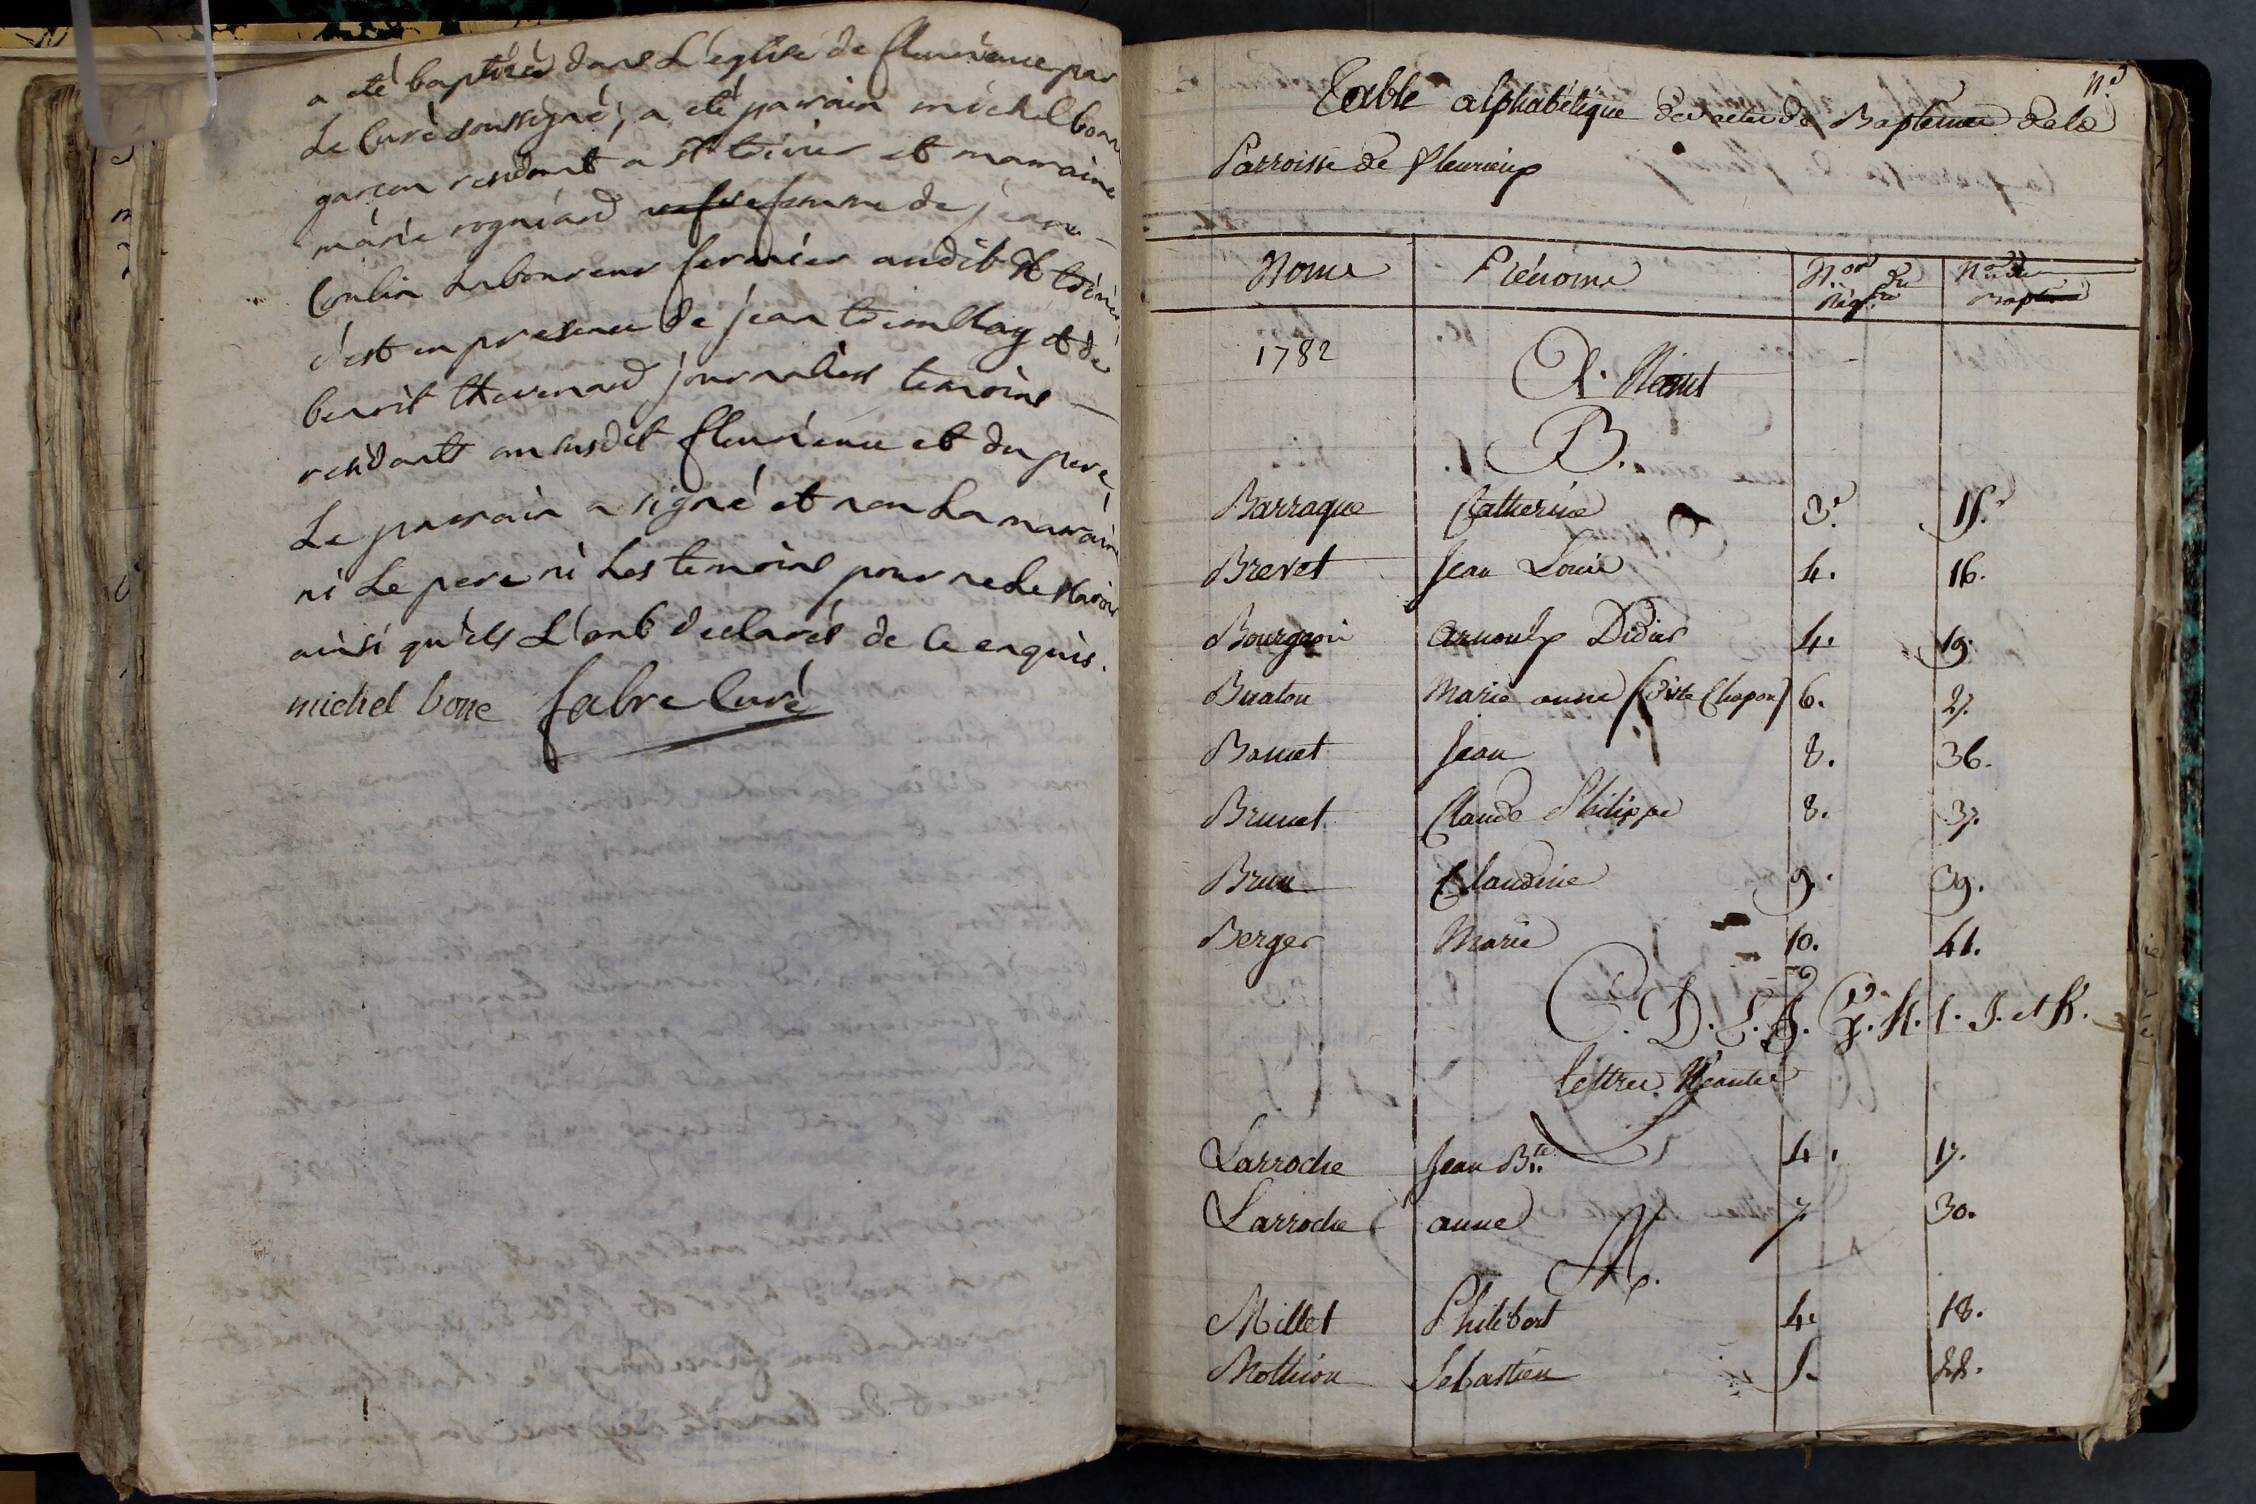 a eté baptisée dans L'eglise de fleurieux par
Le Curé soussigné, a eté parrain michel bone
garçon residant a St trivier et marraine
marie rogniard veufve femme de jean
Coulin Laboureur fermier audit St trivier
c'est en presence de jean trembllay et de
benoit thevenard journaliers temoins
residants au susdit fleurieux et du pere
Le parrain a signé et non La marraine
ni Le pere ni Les temoins pour ne Le scavoir
ainsi qu'ils L'ont declarés de Ce enquis.
michel bone fabre Curé
n.°
Table alphabétique des actes de Baptemes de la
Parroisse de fleurieux
Noms Prénoms N.os du Reg.tre N.os des Baptemes
1782
A. Néant
B.
Barraque Catherine 3. 15.
Brevet Jean Louis 4. 16.
Bourgeois arnoulx Didier 4. 19.
Buaton Marie anne (dite Chapon) 6. 27.
Bamet Jean 8. 36.
Brunet Claude Philippe 8. 37.
Brun Claudine 9. 39.
Berger Marie 10. 41.
C. D. E. F. G. H. I. J. et K.
lettres Néantes
L
Larroche Jean B.te 4. 17.
Larroche anne 7 30.
M.
Millet Philibert 4. 18.
Mothion Sebastien 5. 22.